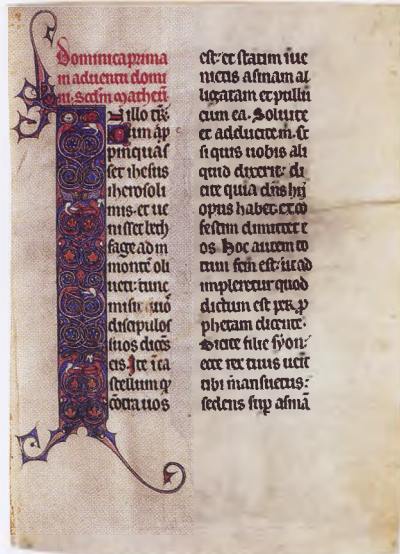 Dominica prima
in adventu domi
ni. Scdm matheu
In illo tpr.
Cum ap
pinquas
set ihesus
iherosoli
mis. et ue
nisset beth
fage ad m
montē oli
ueti: tunc
misit duo
discipulos
suos dicēs
eis. Ite ī ca
stellum qͥ
cōtra uos
est: et statim iue
nietis asinam al
ligatam et pullū
cum ea. Soluite
et adducite m. et
si quis uobis ali
quid dixerit: di
cite quia dn̄s hiis
opus habet. et cō
festim dimittet e
os. Hoc autem to
tum fcm est: ut ad
impleretur quod
dictum est per p
phetam dicente.
Dicite filie syon:
ecce rex tuus uenit
tibi mansuetus:
sedens sup asinā